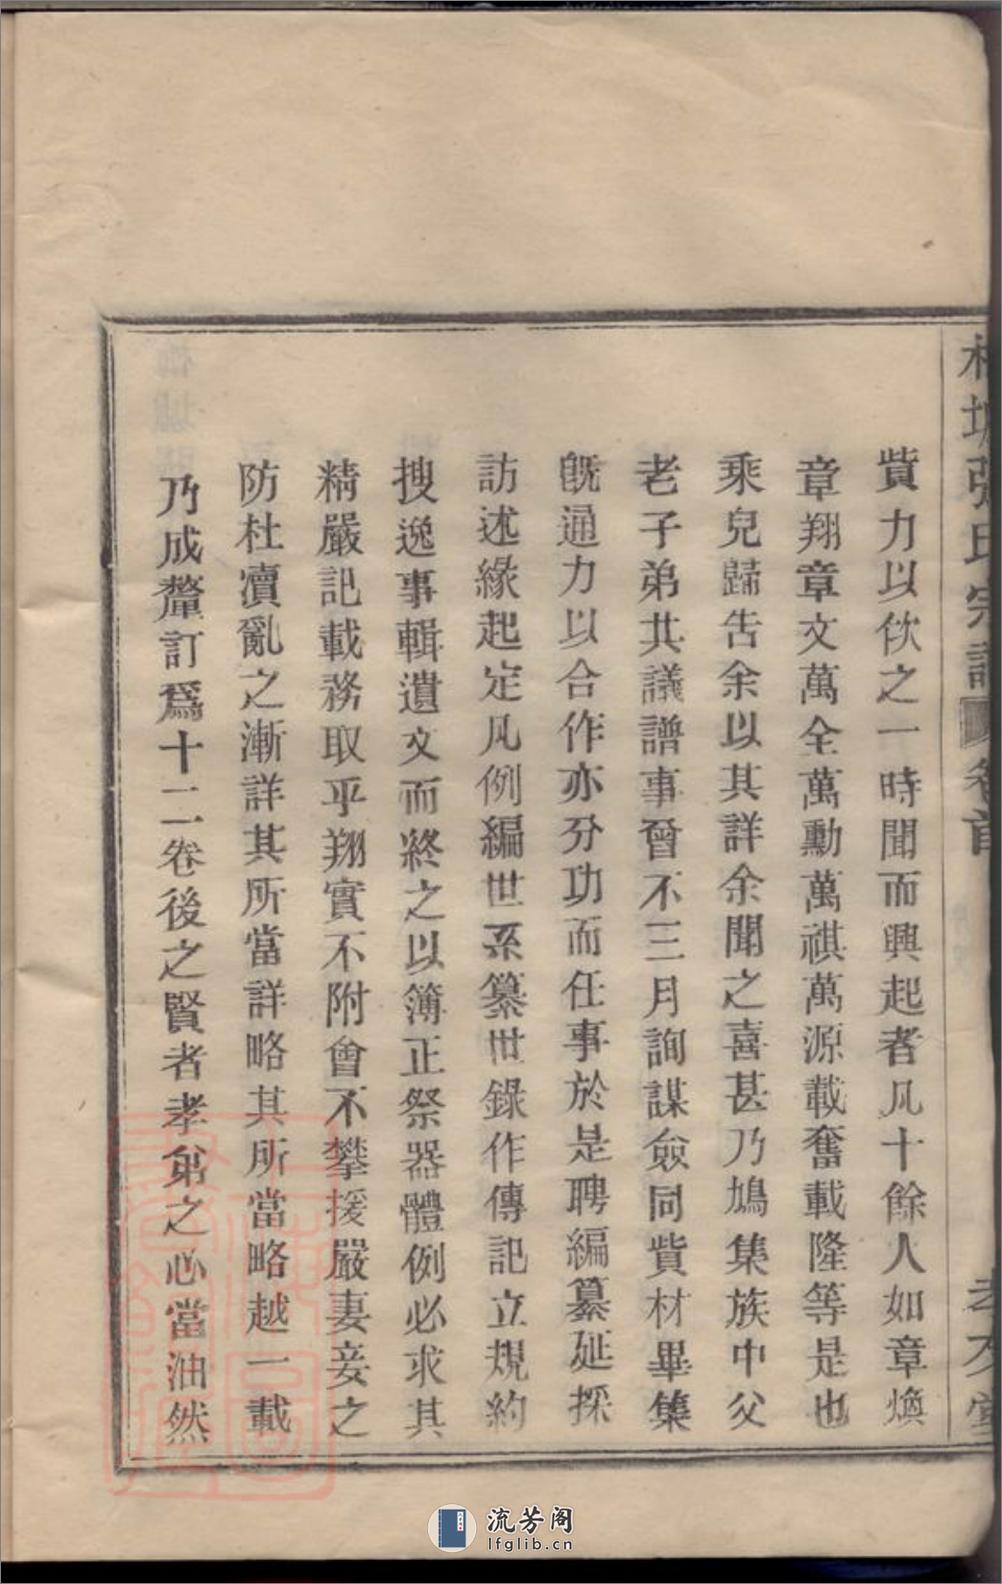 張氏宗譜 卷首
貲力以佽之一時聞而興起者凡十餘人如章煥
章翔章文萬全萬勳萬祺萬源載奮載隆等是也
乘兒歸告余以其詳余聞之喜甚乃鳩集族中父
老子弟共議譜事曾不三月詢謀僉同貲材畢集
旣通力以合作亦分功而任事於是聘編纂延採
訪述緣起定凡例編世系纂世錄作傳記立規約
搜逸事輯遺文而終之以簿正祭器體例必求其
精嚴記載務取乎翔實不附會不攀援嚴妻妾之
防杜瀆亂之漸詳其所當詳略其所當略越一載
乃成釐訂爲十二卷後之賢者孝弟之心當油然
流芳阁
lfglib.cn